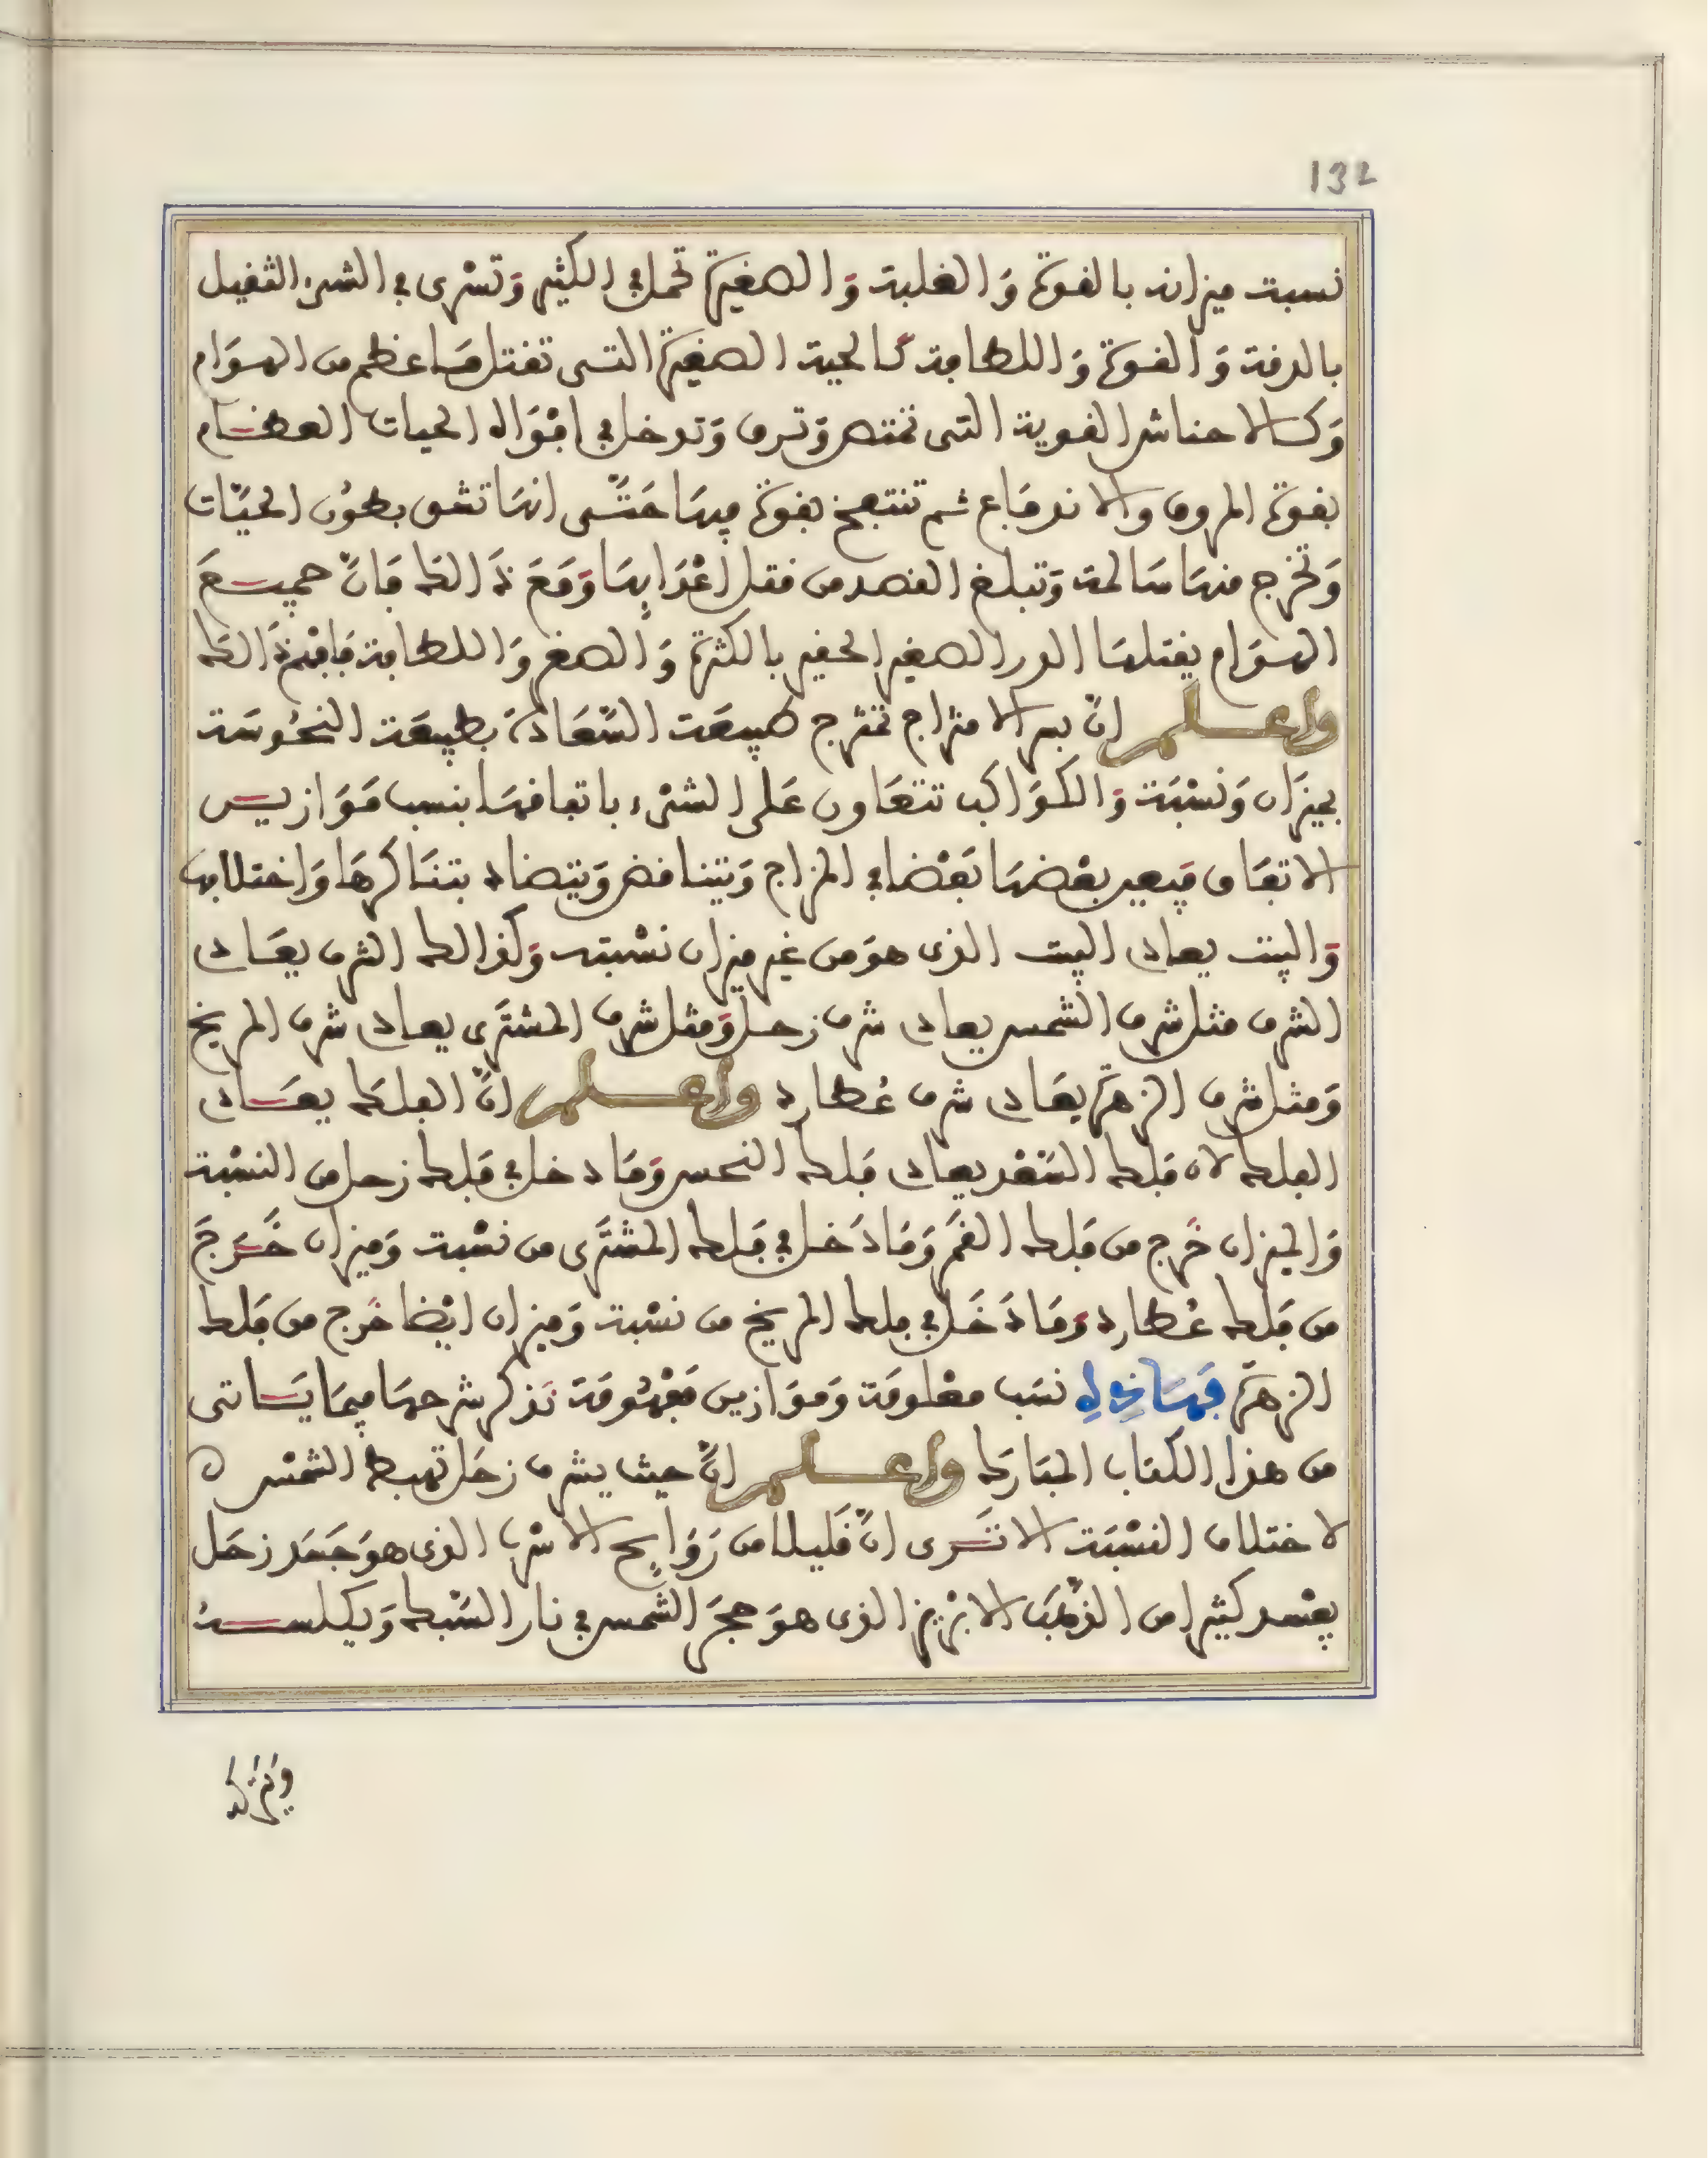 132
نسبت ميزانه بالقوة وَالغلبة وَالصغيرة تحمل في الكثير وَتسْرى في الشىء الثقيل
بالدقة وَالقوة وَاللطافة كالحية الصغيرة التى تقتل مَا عظم من الهوَام
وَكالاحناش القوية التى تمتص وَترق وَتدخل في افوَاه الحيات العظام
بقوة المروق والاندفاع ثم تنتفخ بقوة فيها حَتّى انها تشق بطوُن الحيّات
وَتخرج منها سَالمة وَتبلغ القصد من قتل اعْدَايها وَمَعَ ذَالك فَانّ جميعَ
الهوَام يقتلها الدر الصغير الحقير بالكثرة وَالصغر وَاللطافة فَافهَم ذَالك
واعلم انّ بسر الامتزاج تمتزج طبيعَة السَّعَادَة بطبيعَة النحُوسَة
بميزَان وَنسْبَة وَالكوَاكب تتعَاون عَلى الشىْء باتفاقهَا بنسب مَوَازين
الاتفَاق فيعين بعْضهَا بَعْضا في المزاج وَيتناقض وَيتضاد بتنَاكرهَا وَاختلافها
وَالبيت يعادى البيت الذى هوَ من غير ميزان نسْبته وَكذالك الشرف يعَادى
الشرف مثل شرف الشمس يعادى شرف زحل وَمثل شرف المشتَرى يعادى شرف المريخ
وَمثل شرف الزهرَة يعَادى شرف عُطارد واعلم انّ الفلك يعَادى
الفلك لان فلك السَّعْد يعادى فلك النحس وَمَا دخل في فلك زحل من النسْبة
وَالميزان خَرج من فلك القمَر وَمَا دَخل في فلك المشتَرى من نسْبة وَميزان خَرَجَ
من فلك عُطارد وَمَا دَخَل في فلك المريخ من نسْبة وَميزان ايْضا خَرج من فلك
الزهرَة فهَاذِه نسَب معْلومَة وَمَوَازين مَفهُومَة نَذكر شرحهَا فيمَا يَاتى
من هذا الكتاب المبَارك واعلم انّ حيث يشرف زحَل تهبط الشمْس
لاختلاف النسْبَة الا تَرى انّ قَليلا من رَوَايح الاسْرب الذى هوَ جَسَد زحَل
يفْسد كثيرا من الذهَب الابْريز الذى هوَ حجَر الشّمس في نار السّبك وَيكلسهُ
ويَترُكه